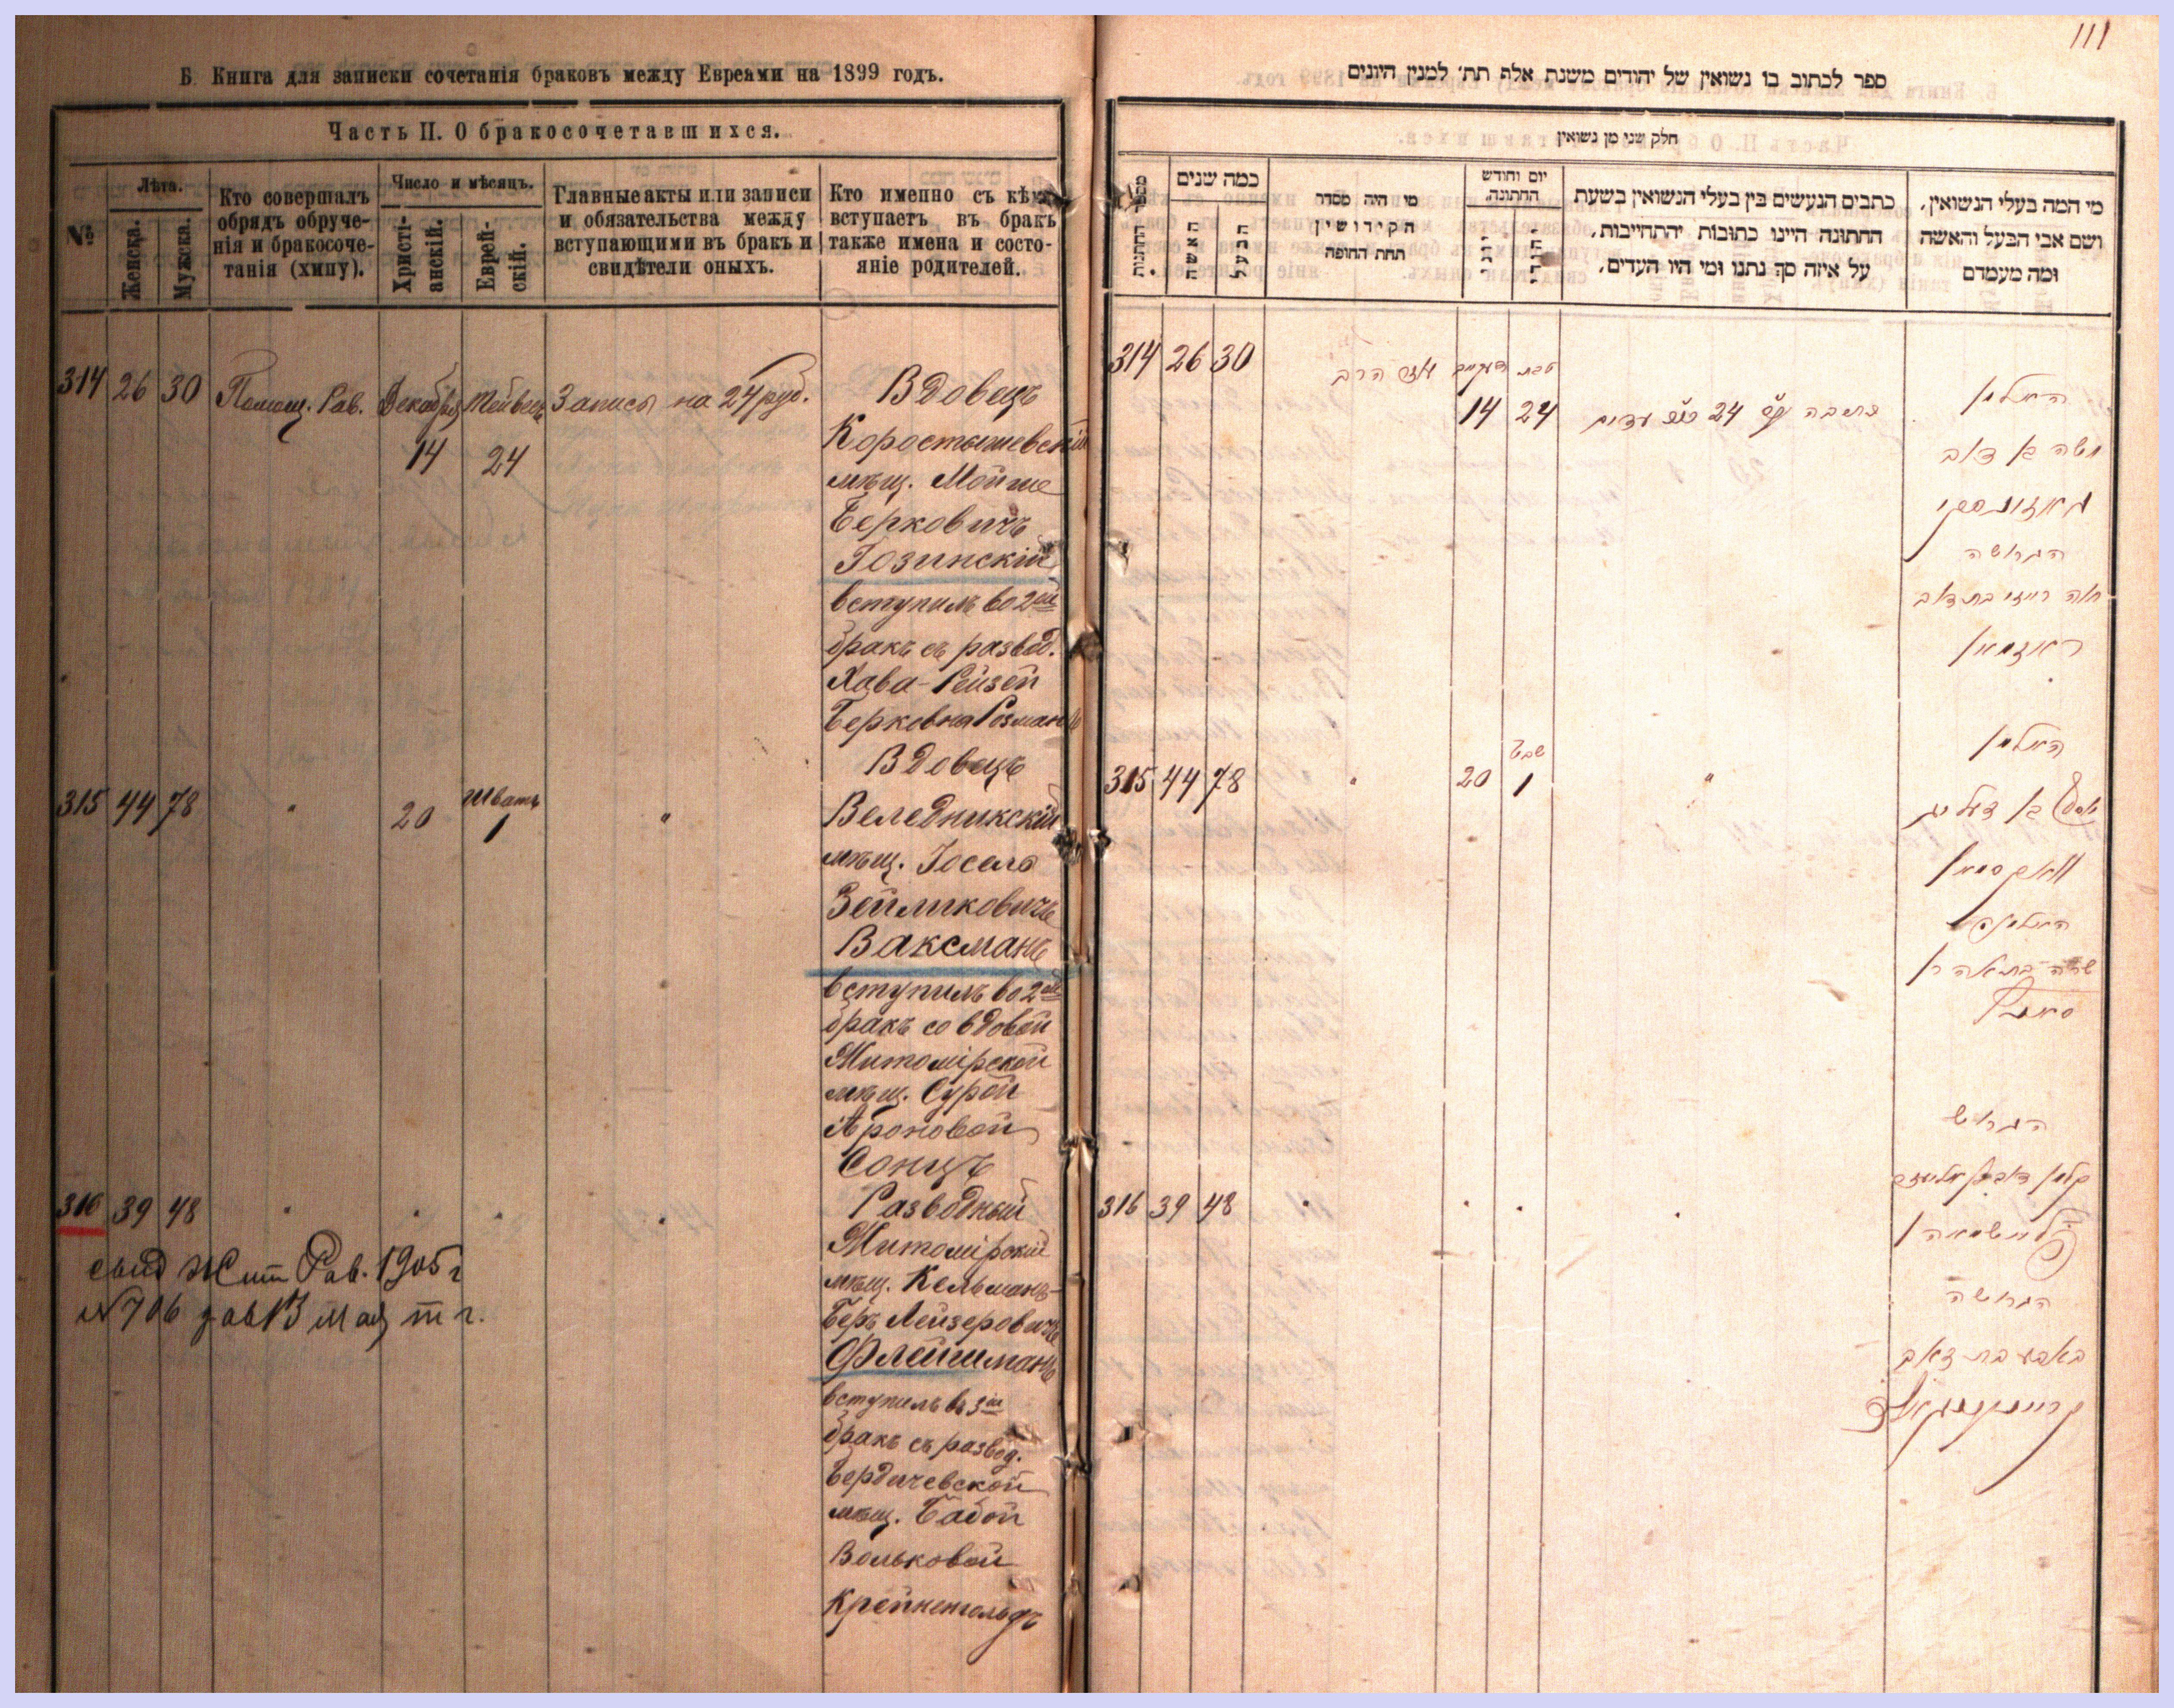 Б. Книга для записки сочетанія браковъ между Евреями на 1899 годъ.
Часть II. О бракосочетавшихся.
№
Лѣта.
Женска.
Мужска.
Кто совершалъ
обрядъ обруче-
нія и бракосоче-
танія (хипу).
Число и мѣсяцъ.
Христі-
анскій.
Еврей-
скій.
Главные акты или записи
и обязательства между
вступающими въ бракъ и
свидѣтели оныхъ.
Кто именно съ кѣмъ
вступаетъ въ бракъ
также имена и состо-
яніе родителей.
314 26 30 Помощ. Рав. Декабря Тейвесъ Запись на 24 руб.
14 24
Вдовецъ
Коростышевскій
мѣщ. Мойше
Берковичъ
Гозинскій
вступилъ во 2ой
бракъ съ развед.
Хава-Рейзей
Берковна Розманъ
315 44 78 " 20 Шватъ 1 "
Вдовецъ
Веледникскій
мѣщ. Іосель
Зейликовичъ
Ваксманъ
вступилъ во 2ой
бракъ со вдовой
Житомірской
мѣщ. Сурой
Ароновой
Сонцъ
316 39 48 " " " "
Разводный
Житомірскій
мѣщ. Кельманъ-
Беръ Лейзеровичъ
Флейшманъ
вступилъ въ 3ій
бракъ съ развед.
Бердичевской
мѣщ. Бабой
Вольковой
Крейнегольдъ
Жит Рав. 1905 г
№ 706 13 мая т г.
111
ספר לכתוב בו נשואין של יהודים משנת אלף תת׳ למנין היונים
חלק שני מן נשואין
כמה שנים
האשה
הבעל
מי היה מסדר
הקידושין
תחת החופה
יום וחודש
החתונה.
כתבים הנעשים בין בעלי הנשואין בשעת
החתונה היינו כתובות יהתחייבות,
על איזה סך נתנו ומי היו העדים.
מי המה בעלי הנשואין,
ושם אבי הבעל והאשה
ומה מעמדם
314 26 30 הרב טבת
14 24 24 עדים
האלמן
משה בן דוב
הגרושה
חוה רייזי בת דוב
ראזמאן
315 44 78 " 20 שבט 1 "
האלמן
וואקסמאן
האלמנה
שרה בת אהרן
316 39 48 " " " "
הגרוש
פליישמאן
הגרושה
באבע בת זאב